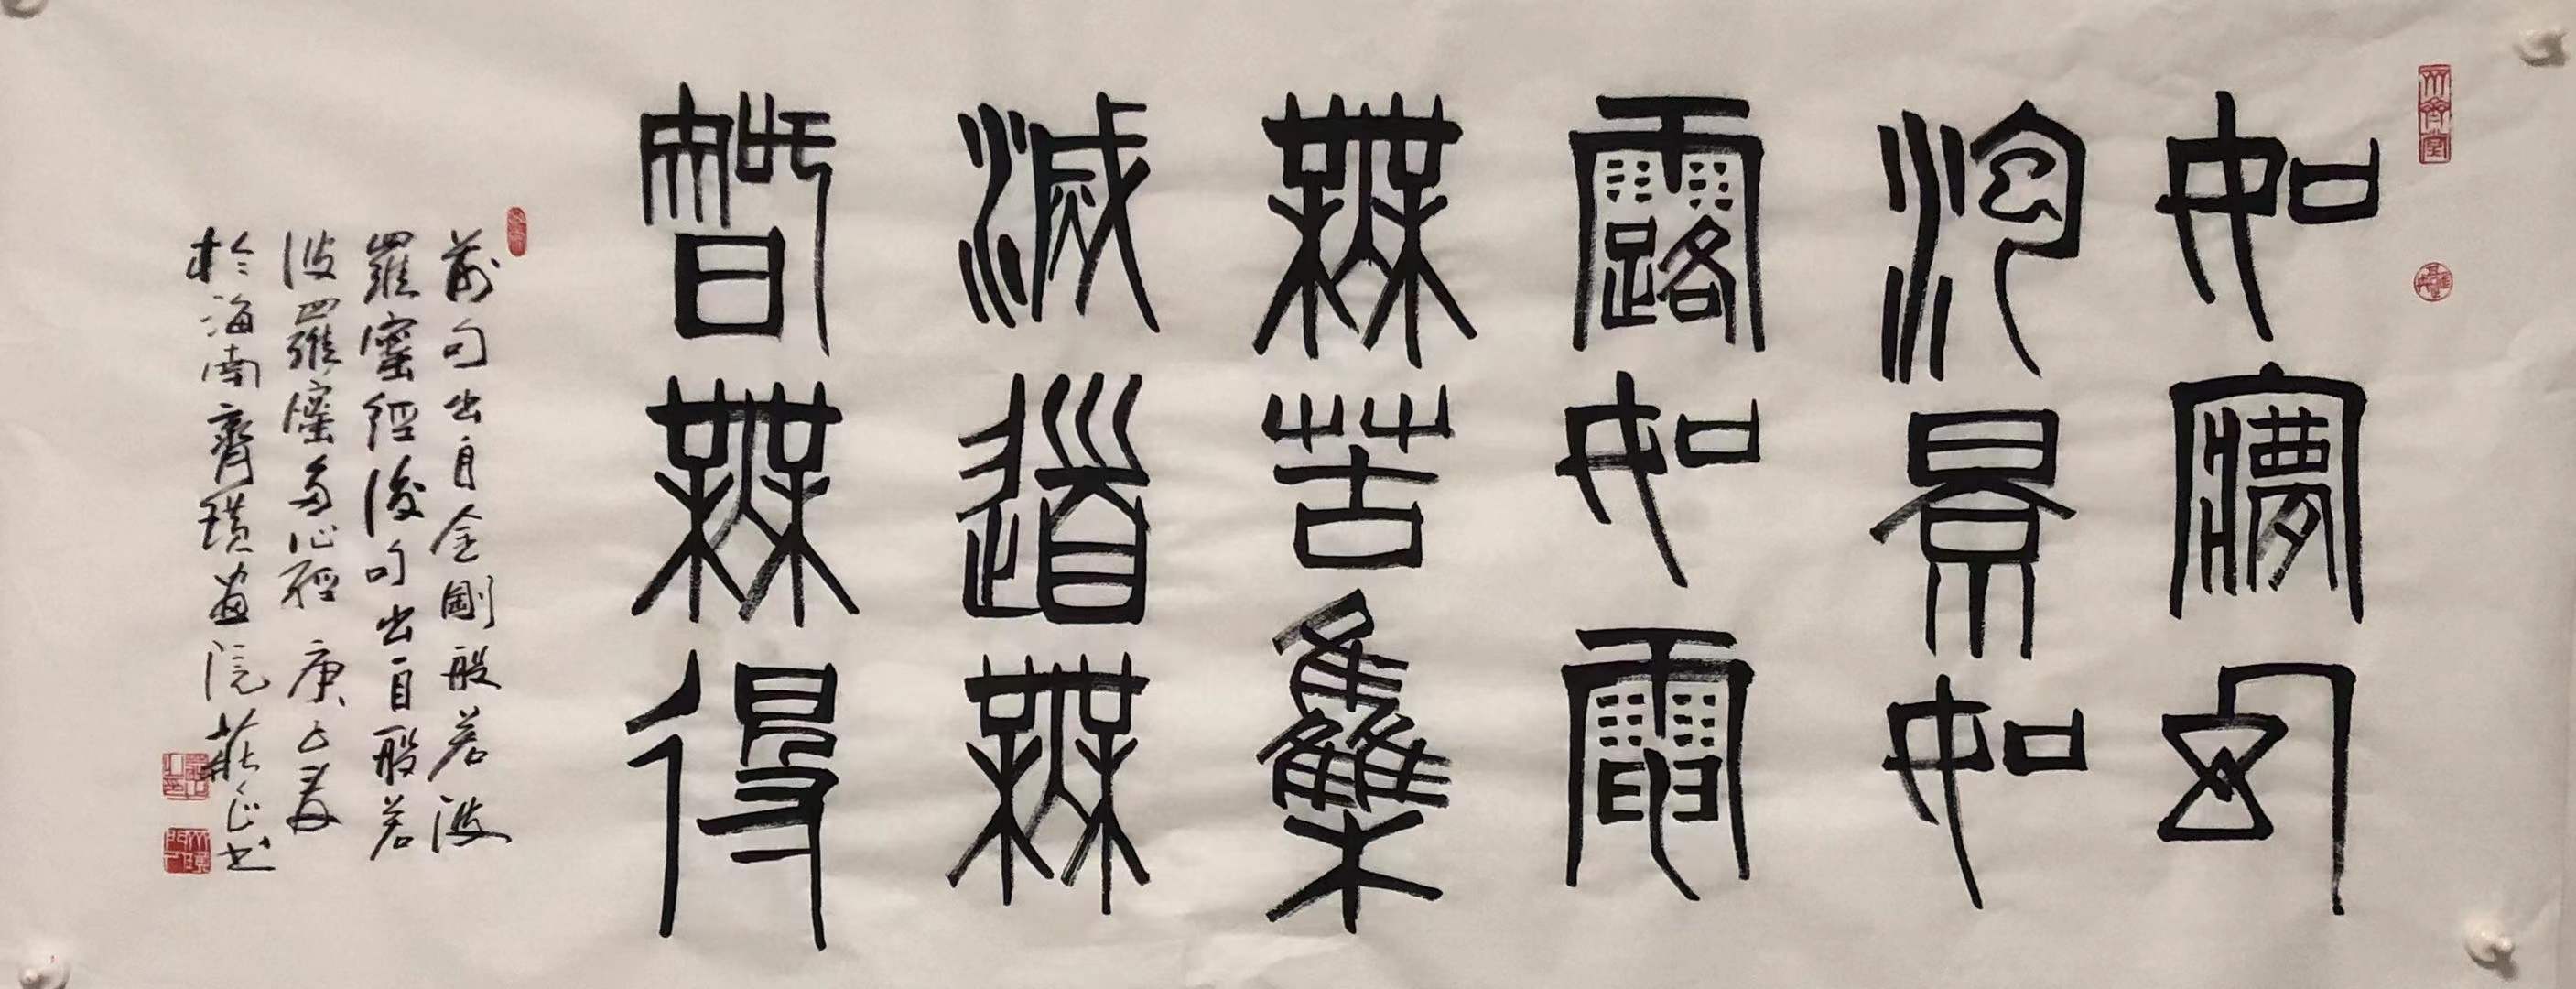 如夢幻
泡景如
露如電
無苦集
滅道無
智無得
前句出自金剛般若波
羅蜜經後句出自般若
波羅蜜多心經 庚子夏
於海南齊璜畫院 莊正书